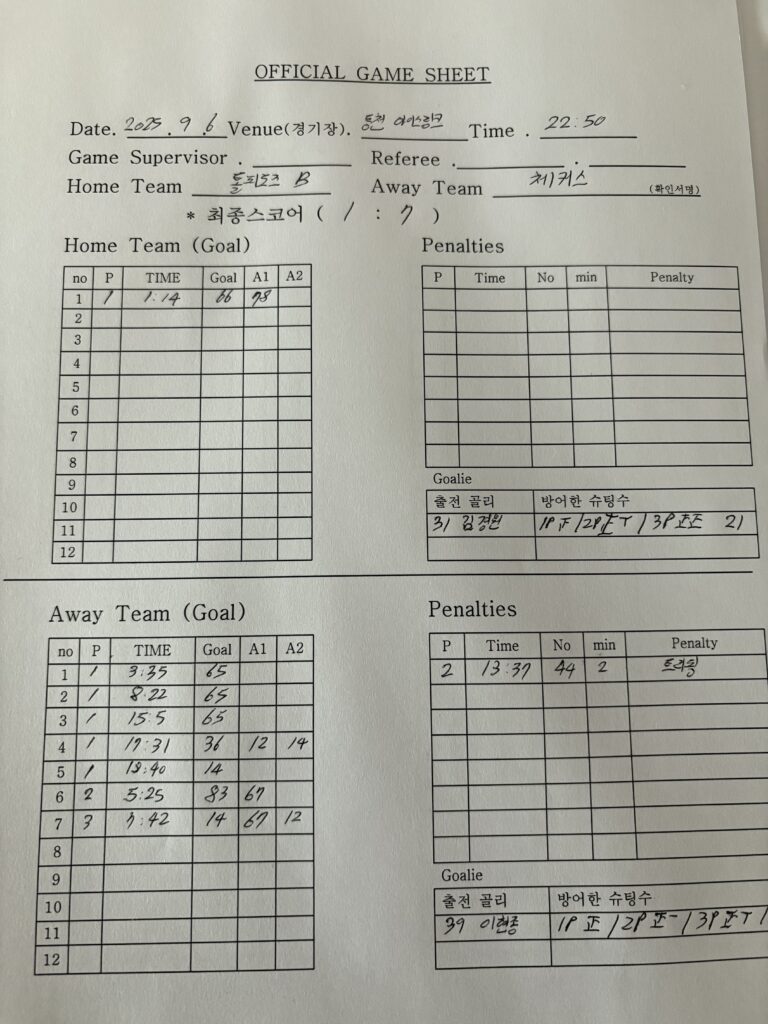 OFFICIAL GAME SHEET
Date. 2025 . 9 . 6 Venue(경기장). 통천 아이스링크 Time . 22:50
Game Supervisor . Referee . .
Home Team 돌피도즈 B Away Team 체커스 (확인서명)
* 최종스코어 ( 1 : 7 )
Home Team (Goal)
no P TIME Goal A1 A2
1 1 1:14 66 78
2
3
4
5
6
7
8
9
10
11
12
Penalties
P Time No min Penalty
Goalie
출전 골리 방어한 슈팅수
31 김경원 1P 正 / 2P 正丅 / 3P 正正 21
Away Team (Goal)
no P TIME Goal A1 A2
1 1 3:35 65
2 1 8:22 65
3 1 15:5 65
4 1 17:31 36 12 14
5 1 18:40 14
6 2 5:25 83 67
7 3 7:42 14 67 12
8
9
10
11
12
Penalties
P Time No min Penalty
2 13:37 44 2 트리핑
Goalie
출전 골리 방어한 슈팅수
39 이현종 1P 正 / 2P 正一 / 3P 正丅 /